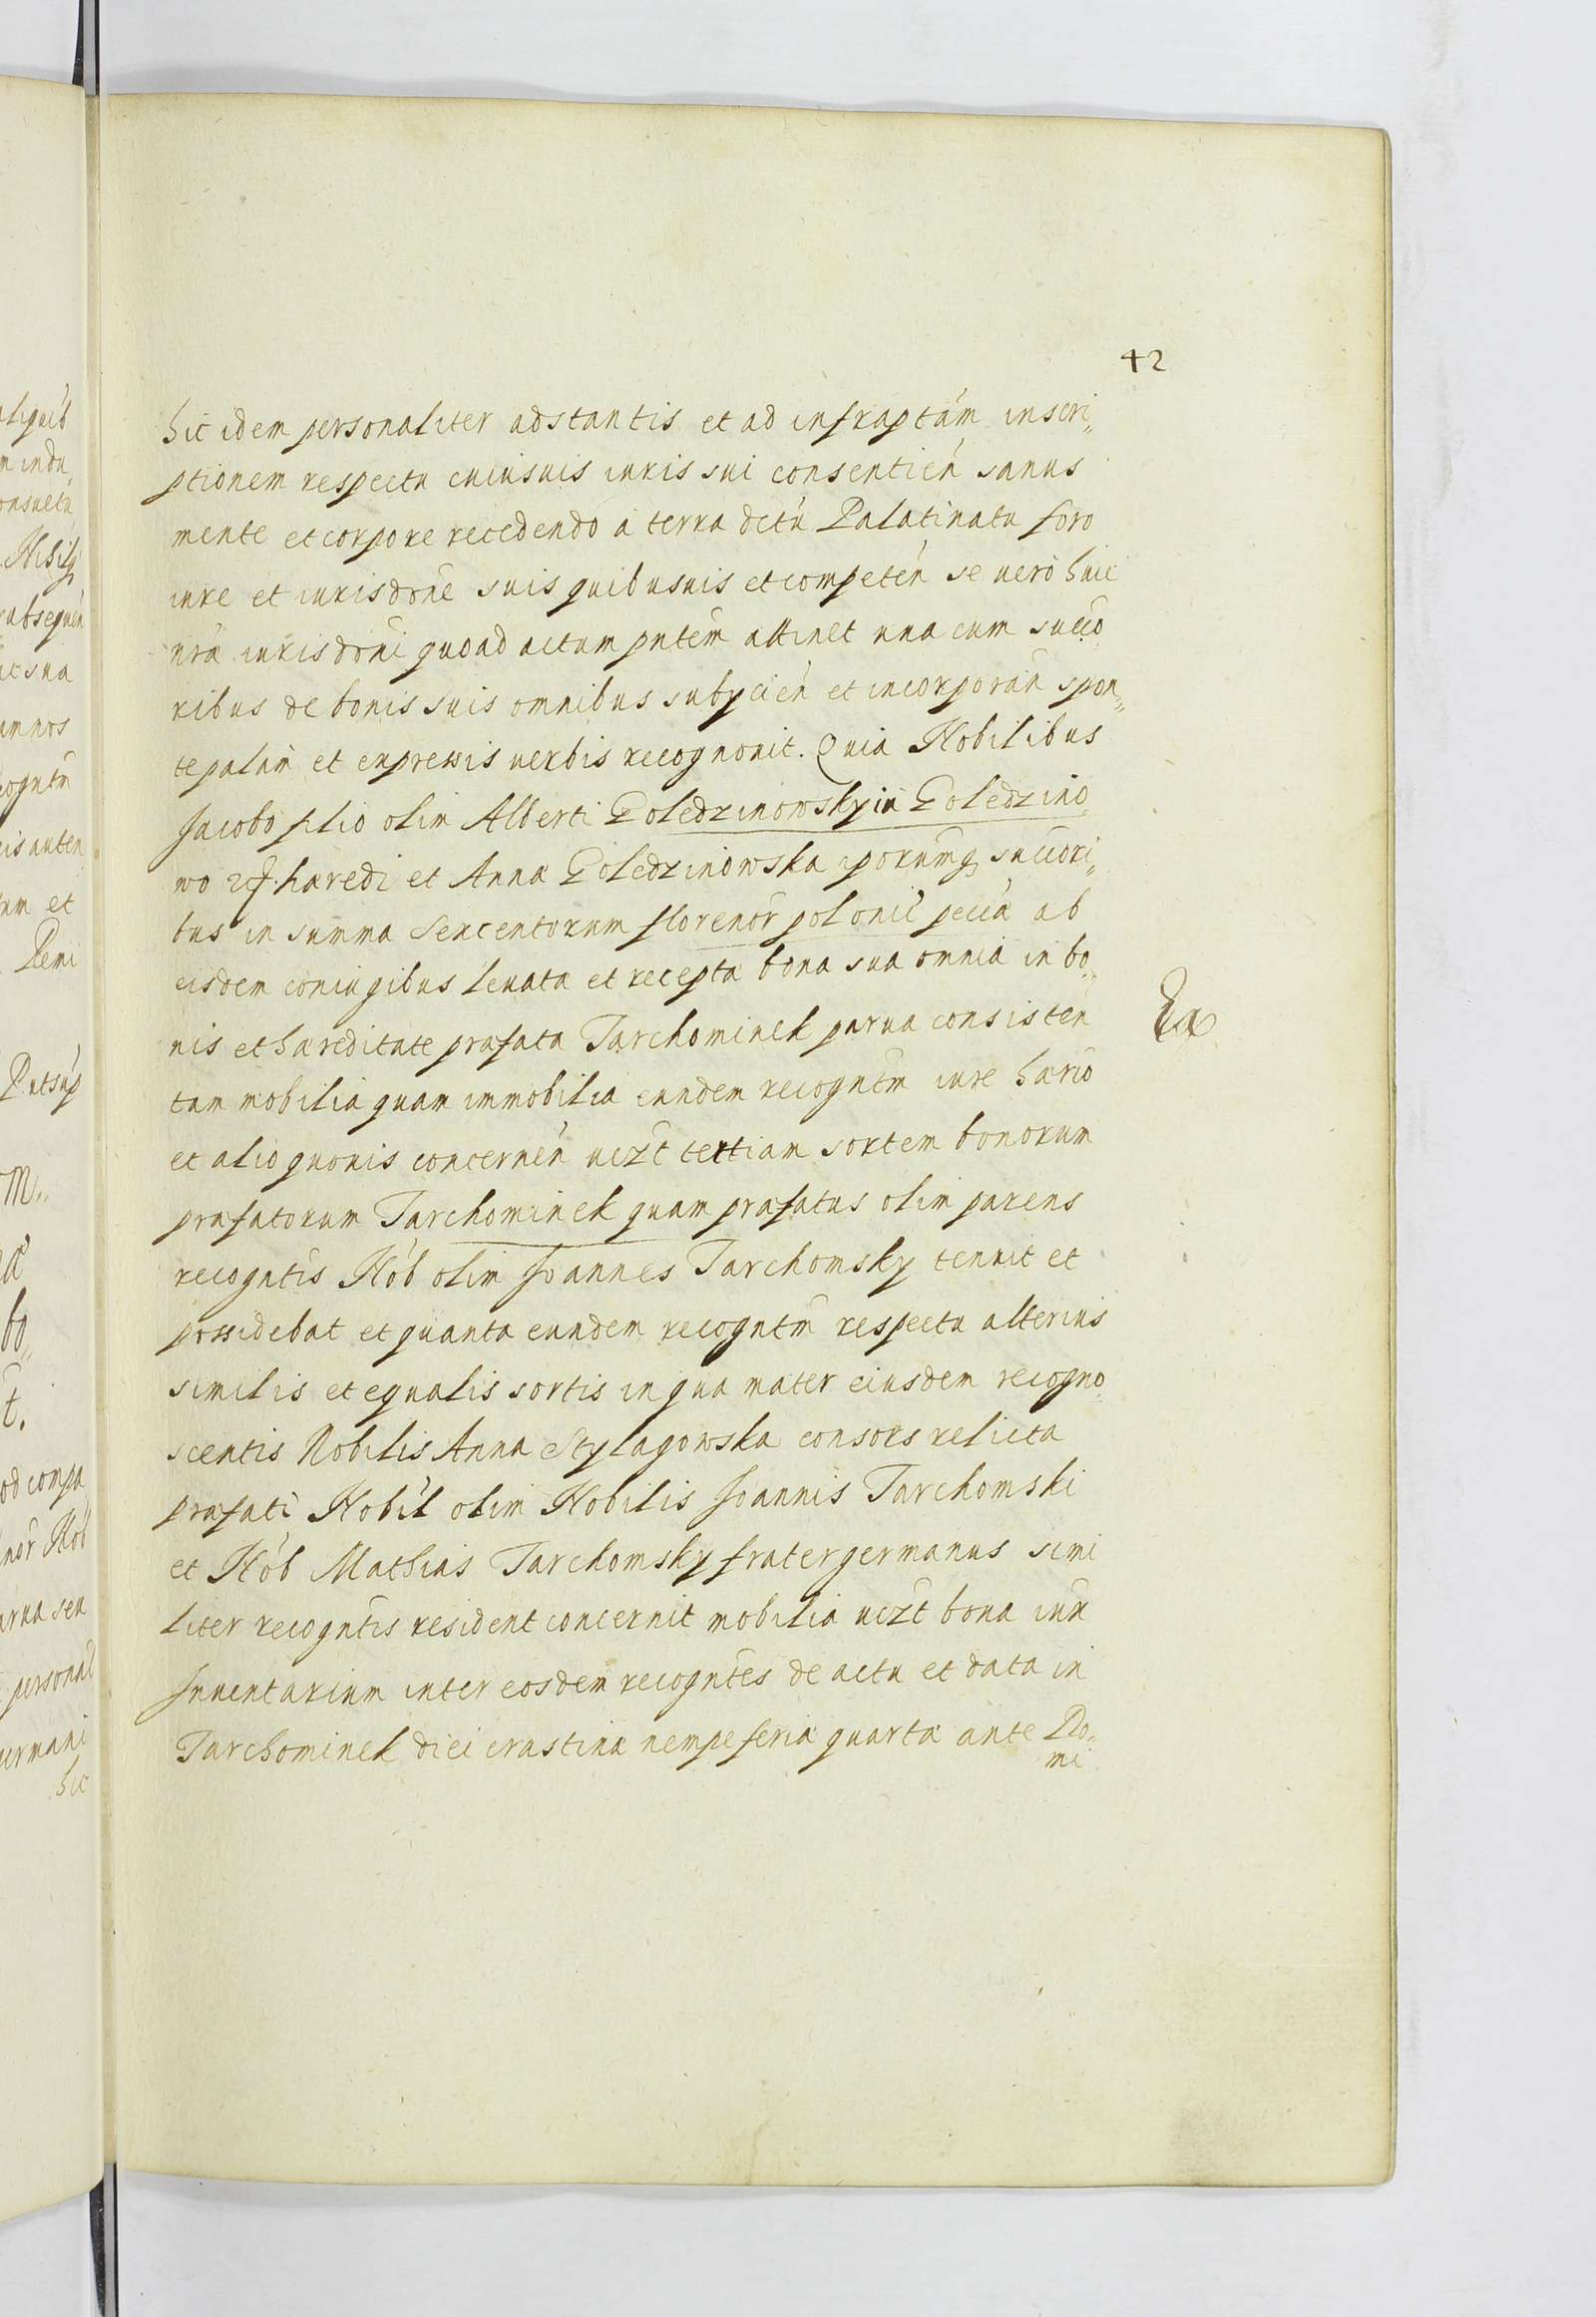 42
hic idem personaliter adstantis et ad infraptam inscri„
ptionem respectu cuiusuis iuris sui consentien sanus
mente et corpore recedendo a terra dctu Palatinatu foro
iure et iurisdone suis quibusuis et competen se vero huic
nra iurisdoni quoad actum pntem attinet una cum succo
ribus de bonis suis omnibus subycien et incorporan spon„
te palam et expressis verbis recognouit. Quia Nobilibus
Jacobo filio olim Alberti Goledzinowsky in Goledzino
wo haeredi et Anna Goledzinowska iporumq succori„
bus in summa Sexcentorum florenor polonic pecia ab
eisdem coniugibus leuata et recepta bona sua omnia in bo„
nis et haereditate prafata Tarchominek parua consisten
tam mobilia quam immobilia eundem recogntm iure hario
et alio quouis concernen uczt tertiam sortem bonorum
prafatorum Tarchominek quam prafatus olim parens
recogntis Nob olim Joannes Tarchomsky tenuit et
possidebat et quanta eundem recogntm respectu alterius
similis et equalis sortis in qua mater eiusdem recogno
scentis Nobilis Anna Stylagowska consors relicta
prafati Nobil olim Nobilis Joannis Tarchomski
et Nob Mathias Tarchomsky frater germanus simi
liter recogntis resident concernit mobilia uczt bona iux
Inuentarium inter eosdem recogntes de actu et data in
Tarchominek diei crastina nempe feria quarta ante Do„
mi